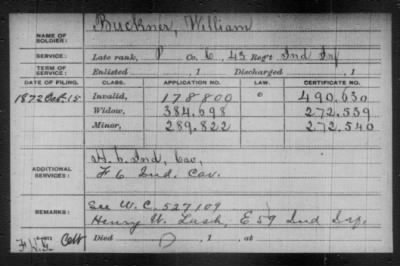 NAME OF SOLDIER: Buckner, William
SERVICE: Late rank, P Co. C, 43 Reg't Ind Inf
TERM OF SERVICE: Enlisted , 1 Discharged , 1
DATE OF FILING. CLASS. APPLICATION NO. LAW. CERTIFICATE NO.
1872 Oct. 15 Invalid, 178800 0 490.630
Widow, 384,698 272.539
Minor, 289.822 272.540
ADDITIONAL SERVICES: H. 6 Ind, Cav,
F 6 Ind. Cav.
REMARKS: See W. C. 527109
Henry W. Lash, E 59 Ind Inf.
Died , 1 , at